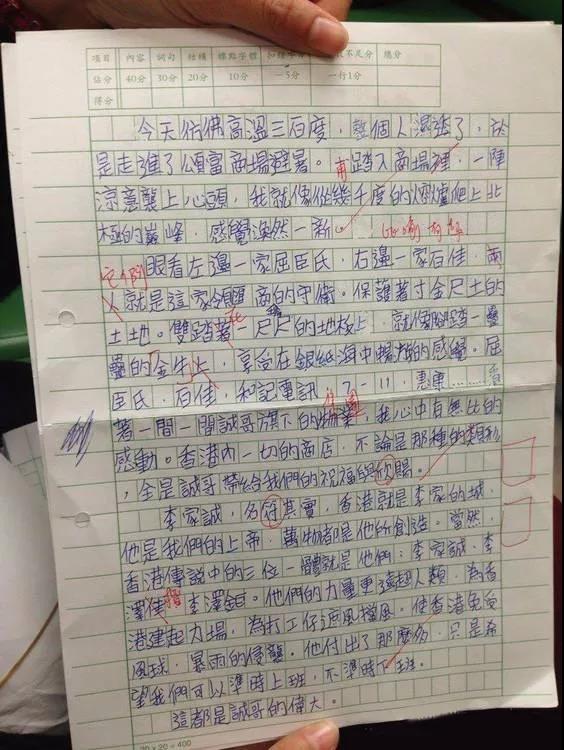 項目 內容 詞句 結構 標點字體 扣錯 不足分 總分
佔分 40分 30分 20分 10分 -5分 一行1分
得分
今天彷彿高溫三百度，整個人濕透了，於
是走進了頌富商場避暑。甫踏入商場裡，一陣
涼意襲上心頭，我就像從幾千度的熔爐爬上北
極的巔峰，感覺渙然一新。
比喻有趣
眼看左邊一家屈臣氏，右邊一家百佳，兩
它們
人就是這家領匯商的守衛。保護著寸金尺土的
土地。雙踏著一尺尺的地板上，就像腳踏一疊
疊的金牛上，享受在銀紙海中暢游的感覺。屈
臣氏，百佳，和記電訊，7-11，惠康……看
著一間一間誠哥旗下的物業，我心中有無比的
感動。香港內一切的商店，不論是那種的類別
，全是誠哥帶給我們的祝福與欣賜。
李家誠，名符其實，香港就是李家的城，
他是我們的上帝，萬物都是他所創造。當然，
香港傳說中的三位一體就是他們：李家誠、李
澤楷、李澤鉅。他們的力量更遠超人類，為香
港建起力場，為打工仔遮風擋風。使香港免受
風球，暴雨的侵襲。他付出了那麼多，只是希
望我們可以準時上班，不準時下班。
這都是誠哥的偉大。
20×20=400